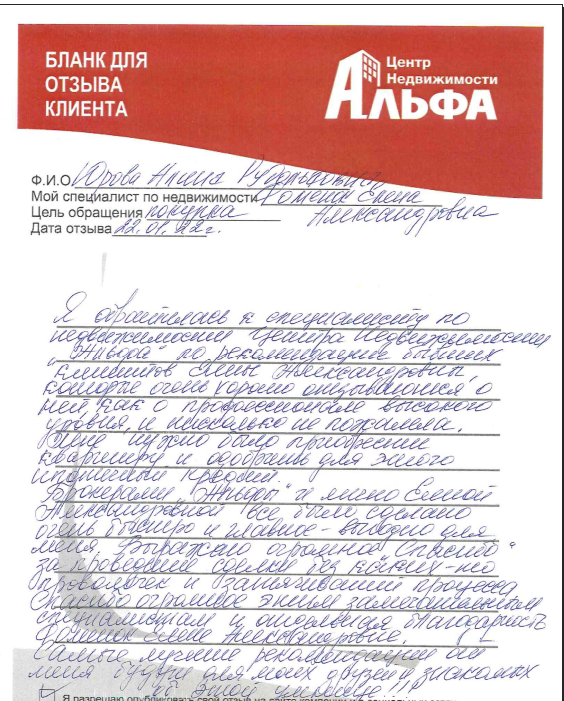 БЛАНК ДЛЯ
ОТЗЫВА
КЛИЕНТА
Центр
Недвижимости
АЛЬФА
Ф.И.О. Юрова Алина Рудольфовна
Мой специалист по недвижимости Фоменк Елена
Цель обращения покупка Александровна
Дата отзыва 22.01.22г.
Я обратилась к специалисту по
недвижимости Центра Недвижимости
"Альфа" по рекомендации бывших
клиентов Елены Александровны
которые очень хорошо отзывались о
ней как о профессионале высокого
уровня, и нисколько не пожалела.
Мне нужно было приобрести
квартиру и одобрить для этого
ипотечный кредит.
Брокерами "Альфы" и лично Еленой
Александровной все было сделано
очень быстро и главное - выгодно для
меня. Выражаю огромное "Спасибо"
за проведение сделки без каких-то
проволочек и затягиваний процесса
Спасибо огромное этим замечательным
специалистам и отдельная благодарность
Фоменок Елене Александровне.
Самые лучшие рекомендации от
меня будут для моих друзей и знакомых
об этой
Я разрешаю опубликовать свой отзыв на сайте компании и в социальных сетях